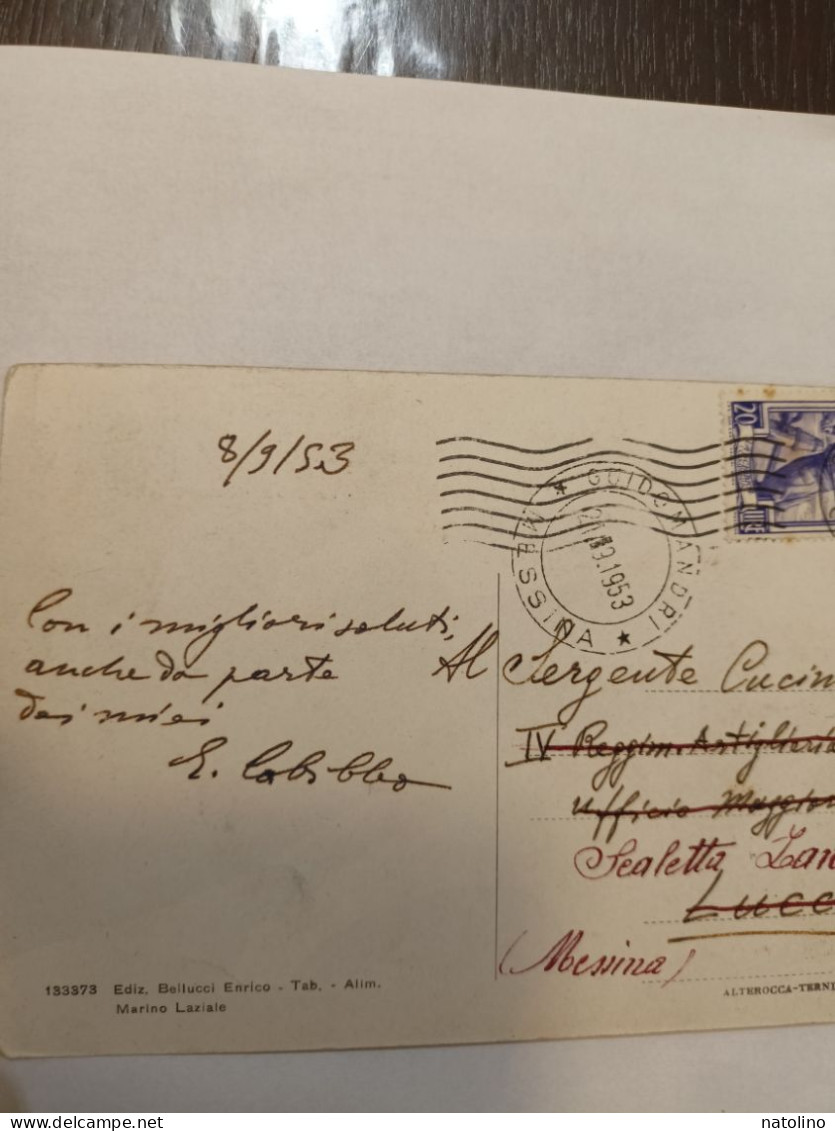 8/9/53
Con i migliori saluti,
anche da parte
dei miei
E. Cabibbo
GUIDOMANDRI
MESSINA
9.1953
20
Al Sergente Cucin
IV Reggim. Artiglieria
Ufficio Maggior
Scaletta Zan
Lucc
(Messina)
133373 Ediz. Bellucci Enrico - Tab. - Alim.
Marino Laziale
ALTEROCCA-TERNI
natolino